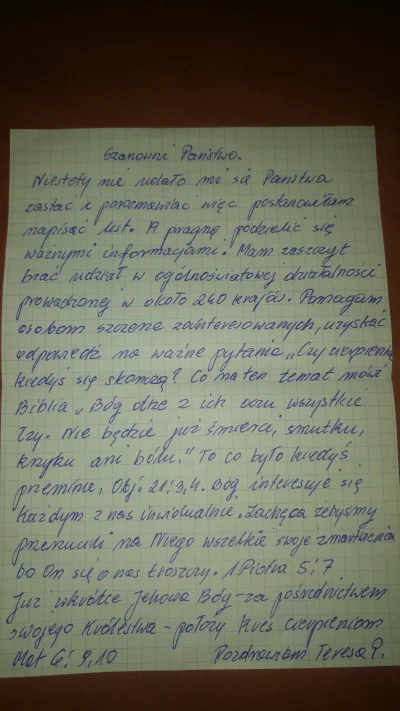 Szanowni Państwo.
Niestety nie udało mi się Państwa
zastać i porozmawiać więc postanowiłam
napisać list. A pragnę podzielić się
ważnymi informacjami. Mam zaszczyt
brać udział w ogólnoświatowej działalności
prowadzonej w około 240 krajów. Pomagam
osobom szczerze zainteresowanych, uzyskać
odpowiedź na ważne pytania „Czy cierpienia
kiedyś się skończą? Co na ten temat mówi
Biblia „Bóg otrze z ich oczu wszystkie
łzy. Nie będzie już śmierci, smutku,
krzyku ani bólu.” To co było kiedyś
przeminie, Obj. 21:3,4. Bóg interesuje się
każdym z nas inwidualnie. Zachęca żebyśmy
przerzucili na Niego wszelkie swoje zmartwienia
bo On się o nas troszczy. 1 Piotra 5:7
Już wkrótce Jehowa Bóg-za pośrednictwem
swojego Królestwa - położy kres cierpieniom
Mat 6: 9,10 Pozdrawiam Teresa P.